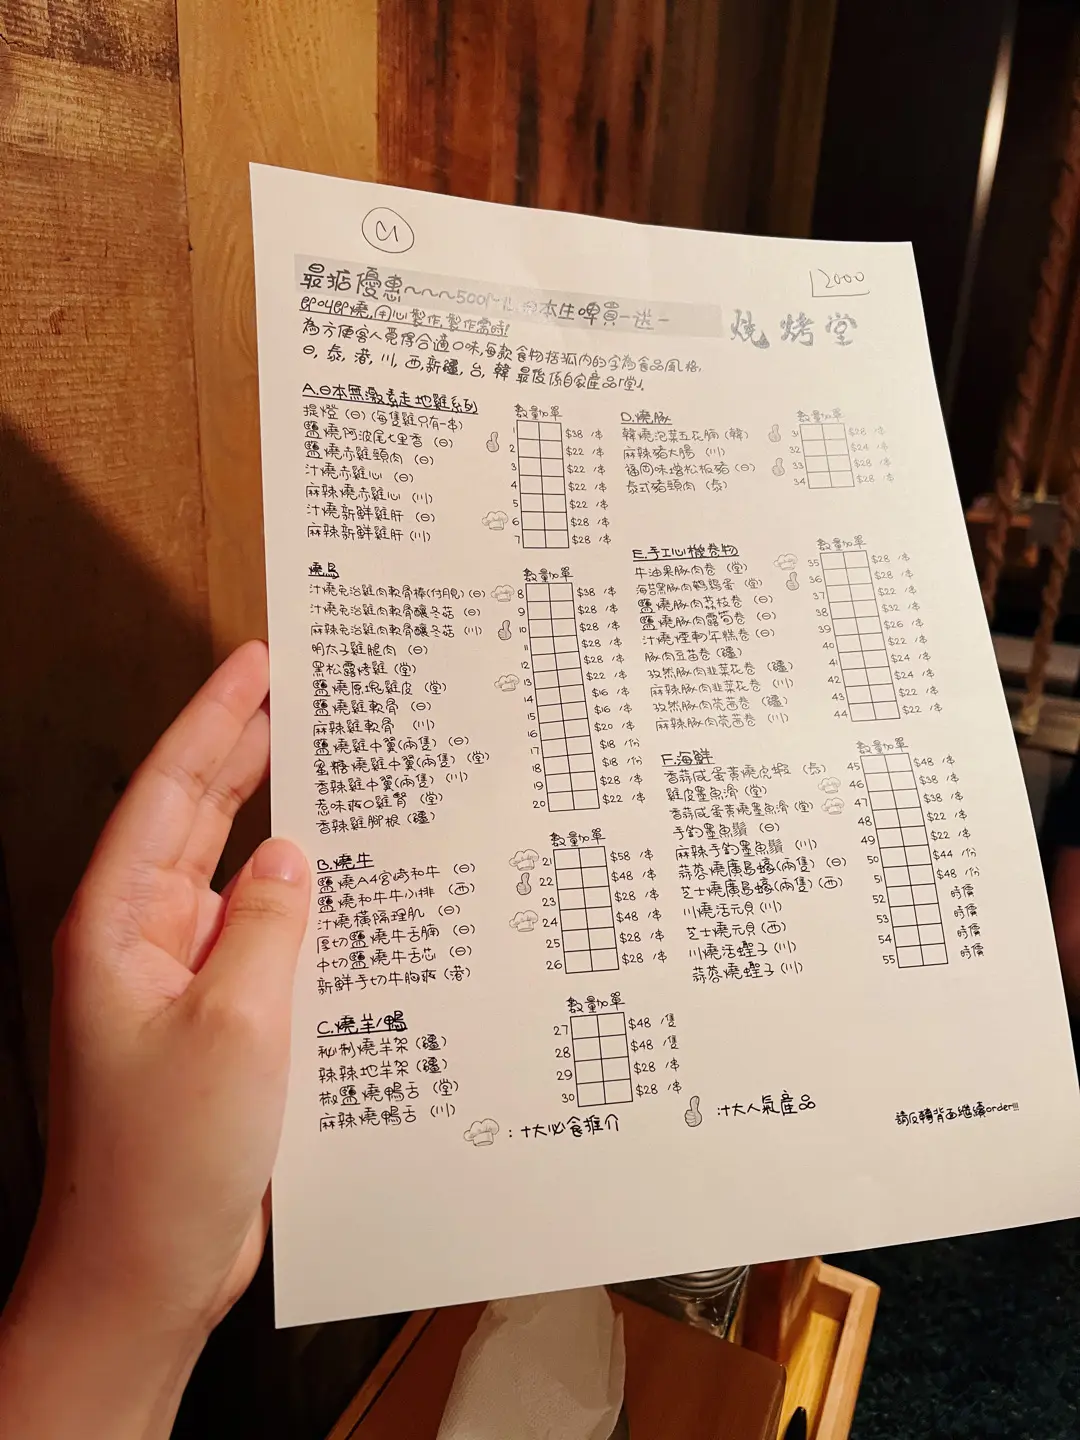 C1
2000
最掂優惠~~~500ml 日本生啤買一送一
燒烤堂
即叫即燒,用心製作,製作需時!
為方便客人覓得合適口味,每款食物括弧內的字為食品風格,
日, 泰, 港, 川, 西, 新疆, 台, 韓 最後係自家產品「堂」.
A.日本無激素走地雞系列
數量加單
提燈 (日) (每隻雞只有一串) 1 $38 /串
鹽燒阿波尾七里香 (日) 2 $22 /串
鹽燒赤雞頸肉 (日) 3 $22 /串
汁燒赤雞心 (日) 4 $22 /串
麻辣燒赤雞心 (川) 5 $22 /串
汁燒新鮮雞肝 (日) 6 $28 /串
麻辣新鮮雞肝 (川) 7 $28 /串
燒鳥
數量加單
汁燒免治雞肉軟骨棒(付月見) (日) 8 $38 /串
汁燒免治雞肉軟骨釀冬菇 (日) 9 $28 /串
麻辣免治雞肉軟骨釀冬菇 (川) 10 $28 /串
明太子雞腿肉 (日) 11 $28 /串
黑松露烤雞 (堂) 12 $28 /串
鹽燒原塊雞皮 (堂) 13 $22 /串
鹽燒雞軟骨 (日) 14 $16 /串
麻辣雞軟骨 (川) 15 $16 /串
鹽燒雞中翼(兩隻) (日) 16 $20 /串
蜜糖燒雞中翼(兩隻) (堂) 17 $18 /份
香辣雞中翼(兩隻) (川) 18 $18 /份
惹味爽口雞腎 (堂) 19 $28 /串
香辣雞腳根 (疆) 20 $22 /串
B.燒牛
數量加單
鹽燒A4宮崎和牛 (日) 21 $58 /串
鹽燒和牛牛小排 (西) 22 $48 /串
汁燒橫隔理肌 (日) 23 $28 /串
厚切鹽燒牛舌腩 (日) 24 $48 /串
中切鹽燒牛舌芯 (日) 25 $28 /串
新鮮手切牛胸爽 (港) 26 $28 /串
C.燒羊/鴨
數量加單
秘制燒羊架 (疆) 27 $48 /隻
辣辣地羊架 (疆) 28 $48 /隻
椒鹽燒鴨舌 (堂) 29 $28 /串
麻辣燒鴨舌 (川) 30 $28 /串
D.燒豚
數量加單
韓燒泡菜五花腩 (韓) 31 $28 /串
麻辣豬大腸 (川) 32 $24 /串
福岡味增松板豬 (日) 33 $28 /串
泰式豬頸肉 (泰) 34 $28 /串
E.手工心機卷物
數量加單
牛油果豚肉卷 (堂) 35 $28 /串
海苔黑豚肉鵪鶉蛋 (堂) 36 $28 /串
鹽燒豚肉荔枝卷 (日) 37 $22 /串
鹽燒豚肉露筍卷 (日) 38 $32 /串
汁燒煙軔年糕卷 (日) 39 $26 /串
豚肉豆苗卷 (疆) 40 $22 /串
孜然豚肉韭菜花卷 (疆) 41 $24 /串
麻辣豚肉韭菜花卷 (川) 42 $24 /串
孜然豚肉芫茜卷 (疆) 43 $22 /串
麻辣豚肉芫茜卷 (川) 44 $22 /串
F.海鮮
數量加單
香蒜咸蛋黃燒虎蝦 (泰) 45 $48 /串
雞皮墨魚滑 (堂) 46 $38 /串
香蒜咸蛋黃燒墨魚滑 (堂) 47 $38 /串
手釣墨魚鬚 (日) 48 $22 /串
麻辣手釣墨魚鬚 (川) 49 $22 /串
蒜蓉燒廣島蠔(兩隻) (日) 50 $44 /份
芝士燒廣島蠔(兩隻) (西) 51 $48 /份
川燒活元貝 (川) 52 時價
芝士燒元貝 (西) 53 時價
川燒活蟶子 (川) 54 時價
蒜蓉燒蟶子 (川) 55 時價
:十大必食推介
:十大人氣產品
請反轉背面繼續order!!!